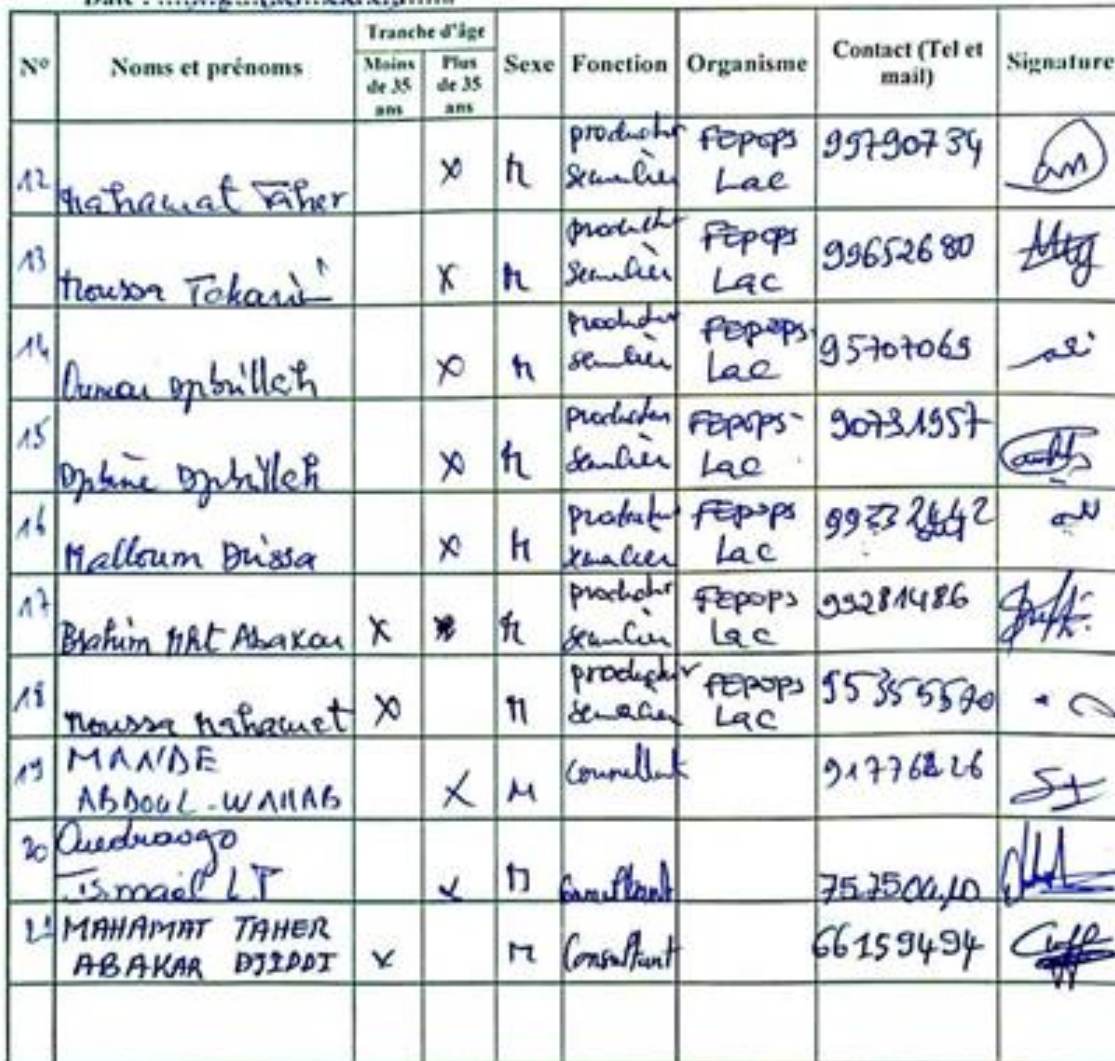 Date :
N° Noms et prénoms Tranche d'âge Sexe Fonction Organisme Contact (Tel et mail) Signature
Moins de 35 ans Plus de 35 ans
12 Mahamat Taher X M producteur semencier FEPOPS Lac 99790734
13 Moussa X M producteur semencier FEPOPS Lac 99652680
14 Oumar Djibrilleh X M producteur semencier FEPOPS Lac 95707069
15 Djibrilleh X M producteur semencier FEPOPS- Lac 90731957
16 Malloum Drissa X M producteur semencier FEPOPS Lac
17 Brahim Mht Abakar X M producteur semencier FEPOPS Lac 99281486
18 Moussa Mahamet X M producteur semencier FEPOPS Lac 95355570
19 MANDE ABDOUL-WAHAB X M Consultant
20 Ouedraogo Ismaël L.T X M Consultant
21 MAHAMAT TAHER ABAKAR DJIDDI X M Consultant 66159494